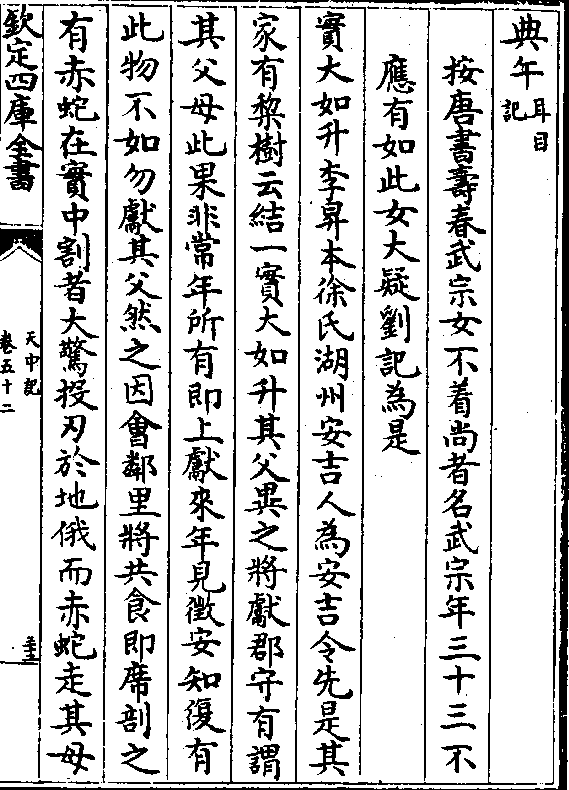 典午耳目記
按唐書壽春武宗女不着尚者名武宗年三十三不
應有如此女大疑劉記為是
實大如升李昪本徐氏湖州安吉人為安吉令先是其
家有棃樹云結一實大如升其父異之將獻郡守有謂
其父母此果非常年所有即上獻來年見徵安知復有
此物不如勿獻其父然之因會鄰里將共食即席剖之
有赤蛇在實中割者大驚投刃於地俄而赤蛇走其母
欽定四庫全書
天中記
卷五十二